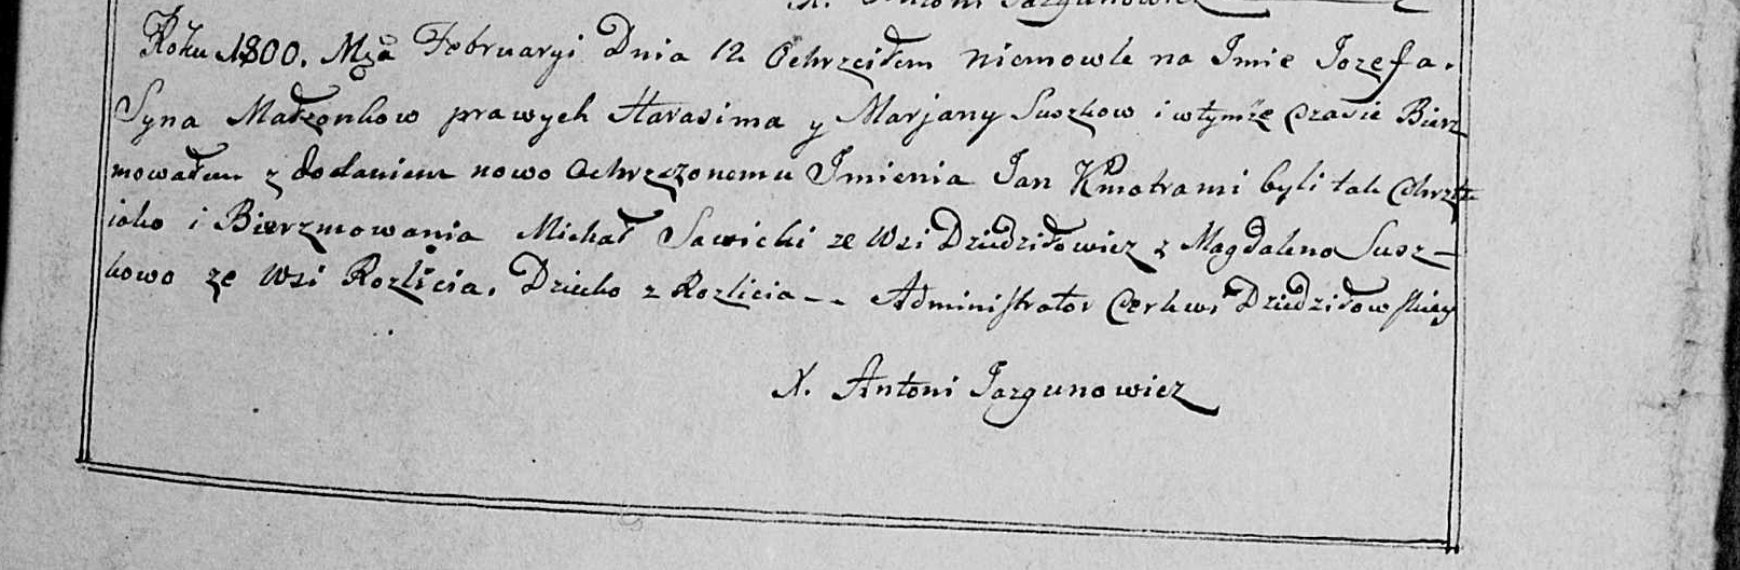 X. Antoni Jazgunowicz
Roku 1800. Mca Februaryi Dnia 12 Ochrzciłem niemowle na Imie Jozefa.
Syna Małzonkow prawych Harasima y Marjany Suszkow i wtymże Czasie Bierz
mowałem z dodaniem nowo Ochrzczonemu Imienia Jan Kmotrami byli tak Chrztu
iako i Bierzmowania Michał Sawicki ze Wsi Dziedziłowicz z Magdaleno Susz–
kowo ze Wsi Rozlicia. Dziecko z Rozlicia -- Administrator Cerkwi Dziedziłowskiey
X. Antoni Jazgunowicz